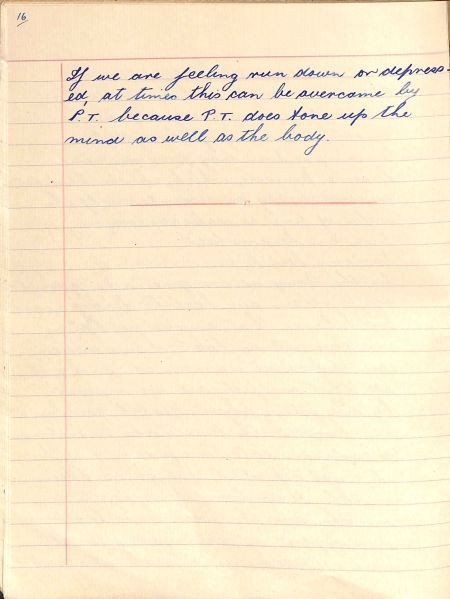 16
If we are feeling run down or depress-
ed, at times this can be overcame by
P.T. because P.T. does tone up the
mind as well as the body.